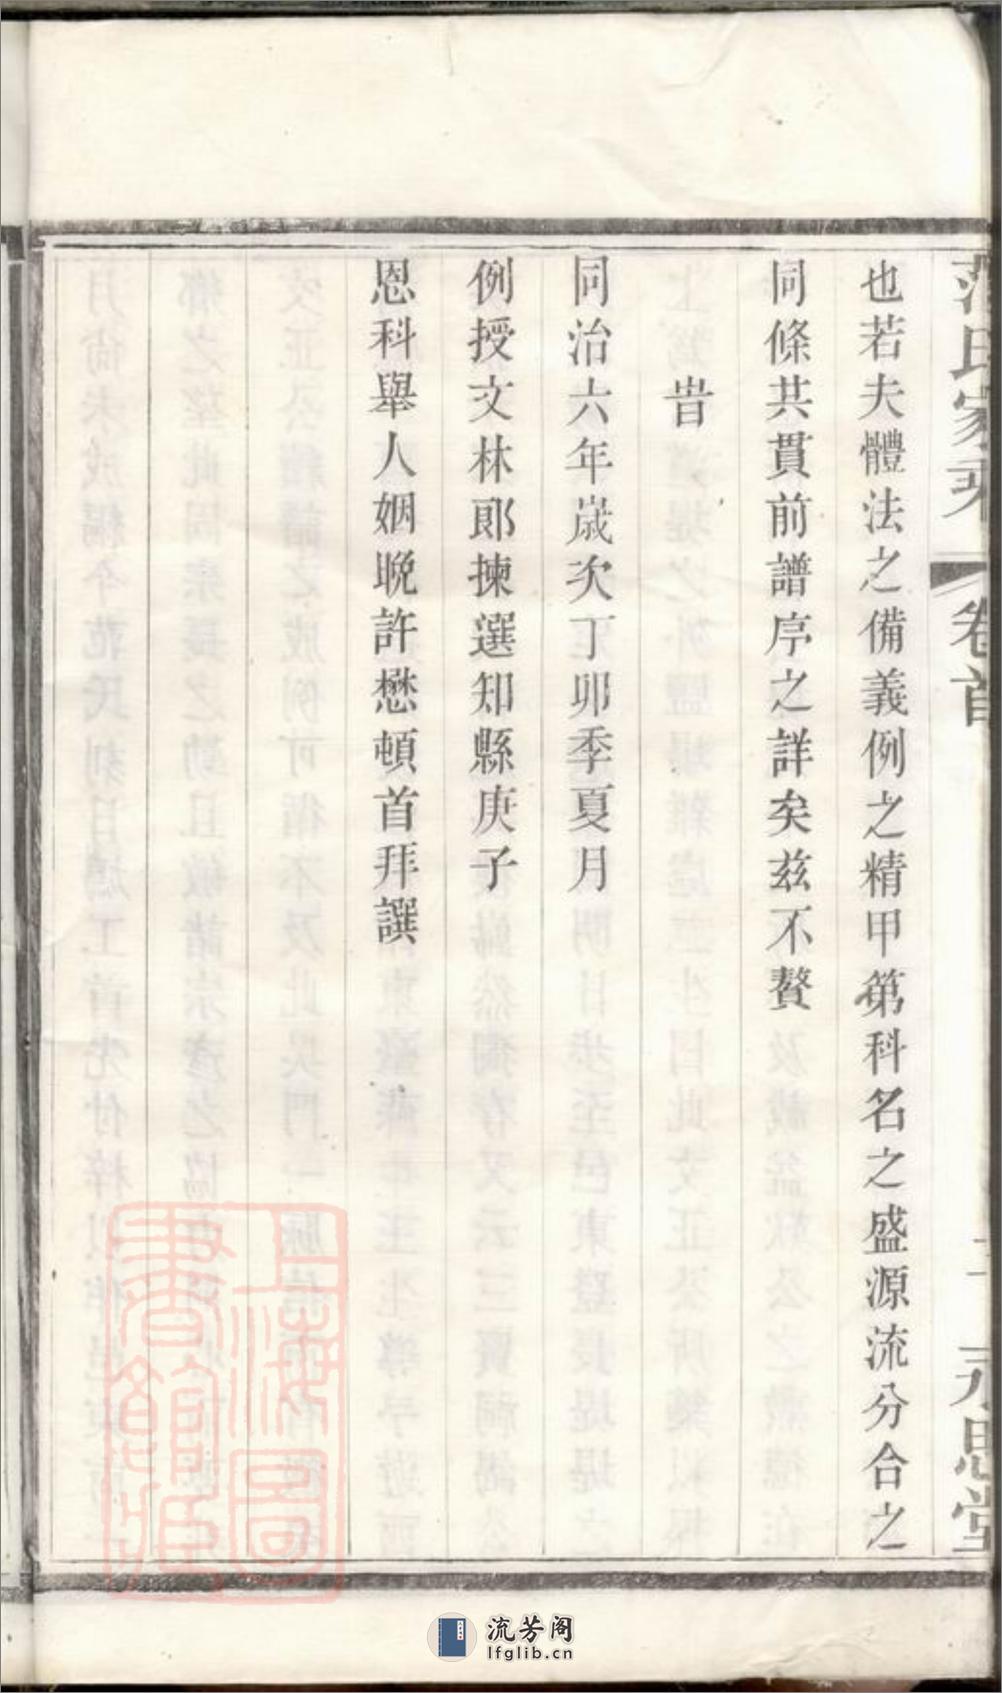 范氏家乘 卷首 二 永思堂
也若夫體法之備義例之精甲第科名之盛源流分合之
同條共貫前譜序之詳矣茲不贅
旹
同治六年歲次丁卯季夏月
例授文林郎揀選知縣庚子
恩科舉人姻晚許懋頓首拜譔
上海圖書館藏
流芳阁
lfglib.cn